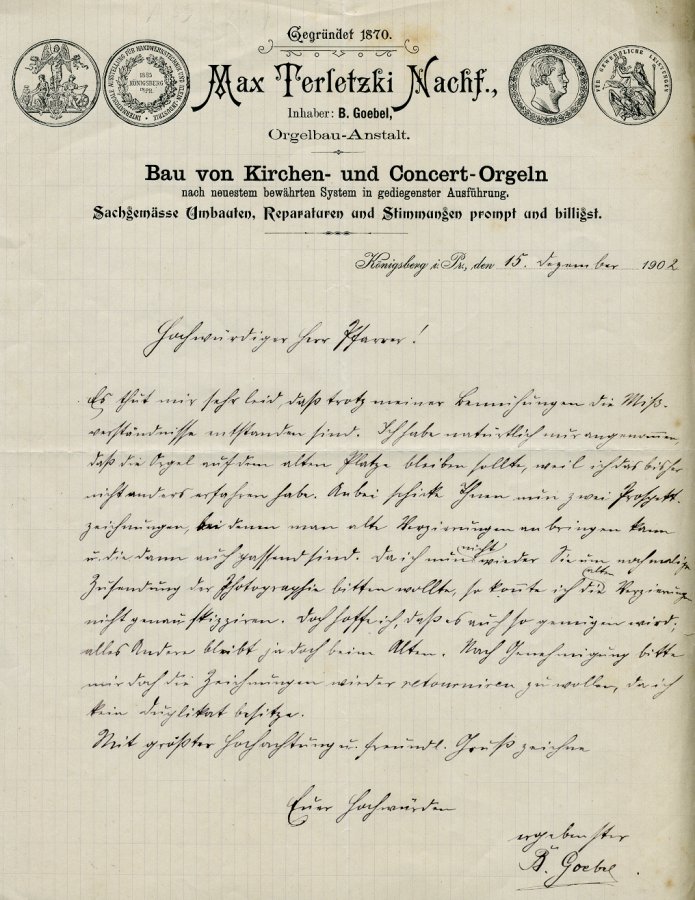 Gegründet 1870.
Max Terletzki Nachf.,
Inhaber: B. Goebel,
Orgelbau-Anstalt.
Bau von Kirchen- und Concert-Orgeln
nach neuestem bewährten System in gediegenster Ausführung.
Sachgemässe Umbauten, Reparaturen und Stimmungen prompt und billigst.
Königsberg i. Pr., den 15. Dezember 1902
Hochwürdiger Herr Pfarrer!
Es thut mir sehr leid, daß trotz meiner Bemühungen die Miß-
verständnisse entstanden sind. Ich habe natürlich nur angenommen,
daß die Orgel auf dem alten Platze bleiben sollte, weil ich das bisher
nicht anders erfahren habe. Anbei schicke Ihnen nun zwei Prospekt-
zeichnungen, bei denen man alte Verzierungen anbringen kann
u. die dann auch passend sind. Da ich nun nicht wieder Sie um nochmalige
Zusendung der Photographie bitten wollte, so konnte ich die alten Verzierungen
nicht genau skizziren. Doch hoffe ich, daß es auch so genügen wird;
alles Andere bleibt ja doch beim Alten. Nach Genehmigung bitte
mir doch die Zeichnungen wieder retourniren zu wollen, da ich
kein Duplikat besitze.
Mit größter Hochachtung u. freundl. Gruß zeichne
Euer Hochwürden
ergebenster
B. Goebel.
INTERNATIONALE AUSSTELLUNG FÜR HANDWERKSTECHNIK UND KLEIN-INDUSTRIE
1885
KÖNIGSBERG
I/PR.
FÜR GEWERBLICHE LEISTUNGEN